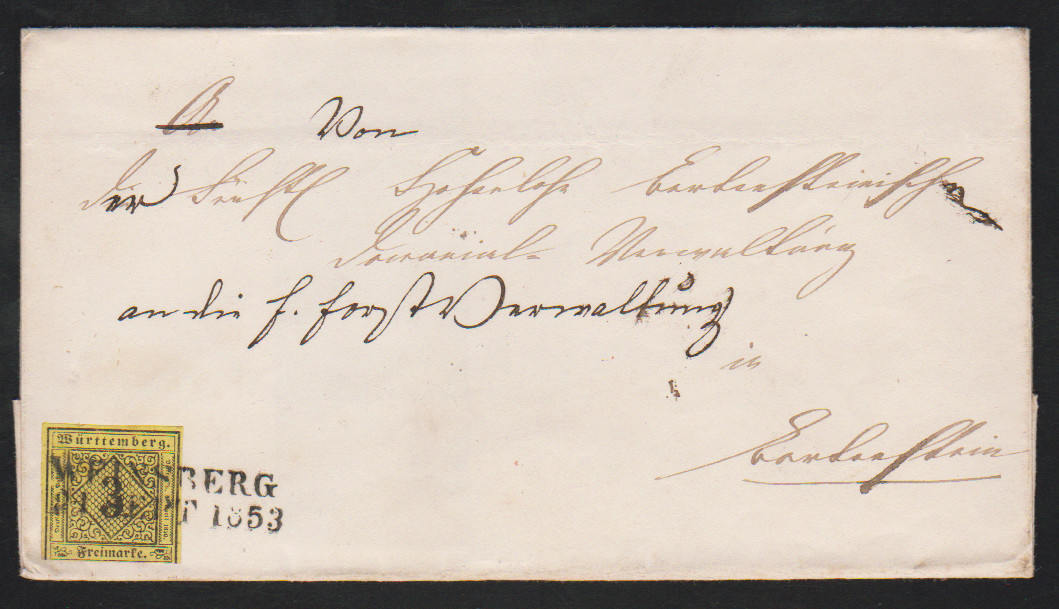 A. Von
der Fürstl Hohenlohe Bartensteinischen
Domanial-Verwaltung
an die f. Forst Verwaltung
in
Bartenstein
Württemberg.
3
Freimarke.
WEINSBERG
21 SEPT 1853